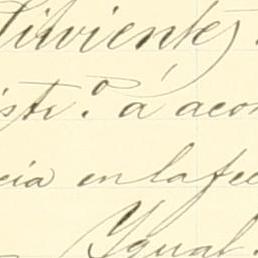 Sirvientes
istr.º á acor
cia en la fec
Ygual